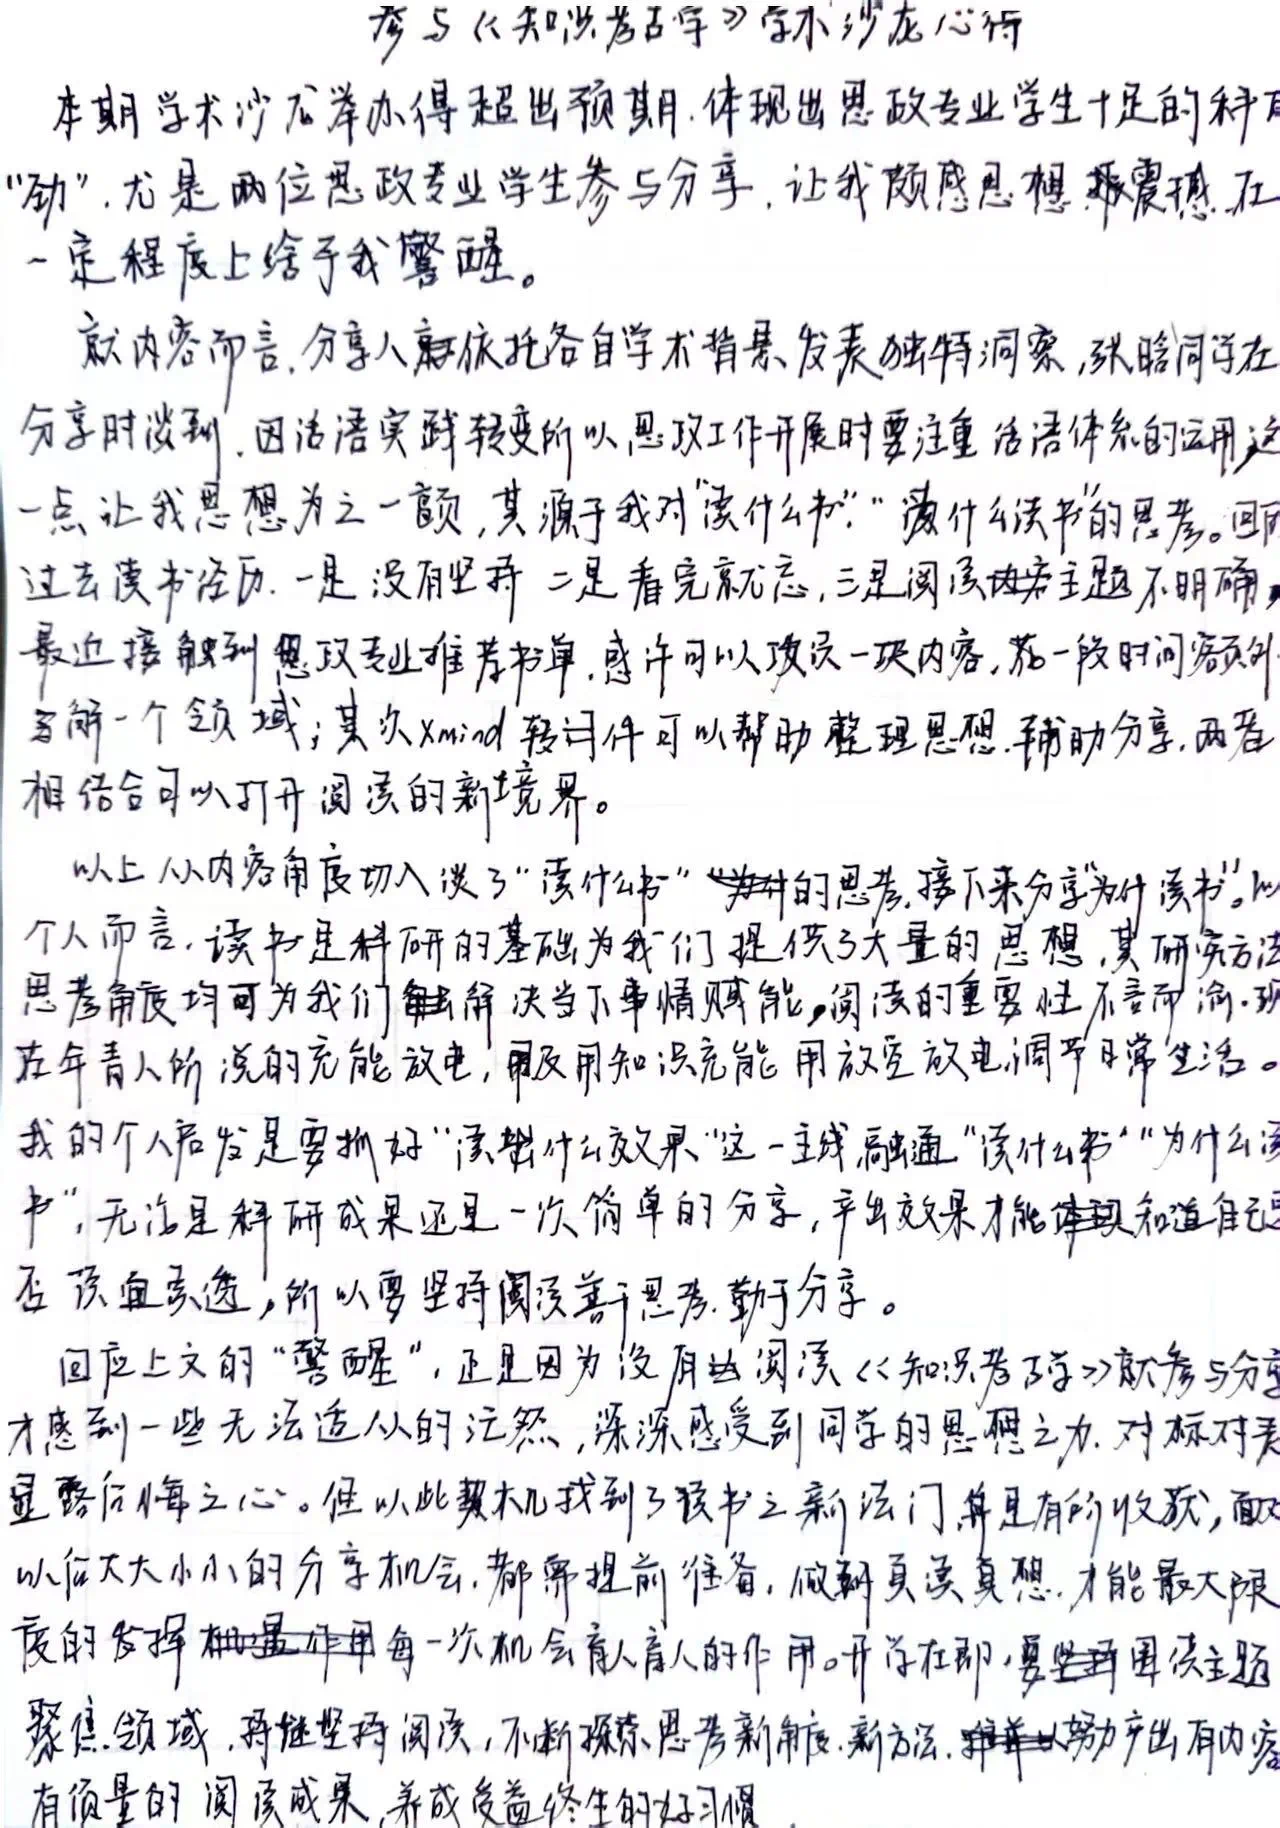 参与《知识考古学》学术沙龙心得
本期学术沙龙举办得超出预期.体现出思政专业学生十足的科研
“劲”.尤是两位思政专业学生参与分享.让我颇感思想震撼.在
一定程度上给予我警醒。
就内容而言.分享人依托各自学术背景发表独特洞察,张晗同学在
分享时谈到.因话语实践转变所以思政工作开展时要注重话语体系的运用,这
一点让我思想为之一颤,其源于我对“读什么书”.“为什么读书”的思考。回顾
过去读书经历.一是没有坚持 二是看完就忘,三是阅读内容主题不明确.
最近接触到思政专业推荐书单.或许可以攻读一块内容,花一段时间额外
了解一个领域;其次Xmind软件可以帮助整理思想.辅助分享.两者
相结合可以打开阅读的新境界。
以上从内容角度切入谈了“读什么书”的思考.接下来分享“为什读书”。以
个人而言.读书是科研的基础为我们提供了大量的思想,其研究方法
思考角度均可为我们解决当下事情赋能,阅读的重要性不言而喻.现
在年青人所说的充能放电,用知识充能用放空放电,调节日常生活。
我的个人启发是要抓好“读出什么效果”这一主线,融通“读什么书”“为什么读
书”,无论是科研成果还是一次简单的分享,产出效果才能知道自己是
否读宜读透,所以要坚持阅读善于思考.勤于分享。
回应上文的“警醒”.正是因为没有阅读《知识考古学》就参与分享
才感到一些无法适从的茫然,深深感受到同学的思想之力.对标对表
显露后悔之心。但以此契机找到了读书之新法门.算是有所收获,面对
以后大大小小的分享机会.都需提前准备.做到真读真想.才能最大限
度的发挥每一次机会育人育人的作用。开学在即,要围绕主题
聚焦领域.持续坚持阅读,不断探索思考新角度.新方法.努力产出有内容
有质量的阅读成果,养成受益终生的好习惯.